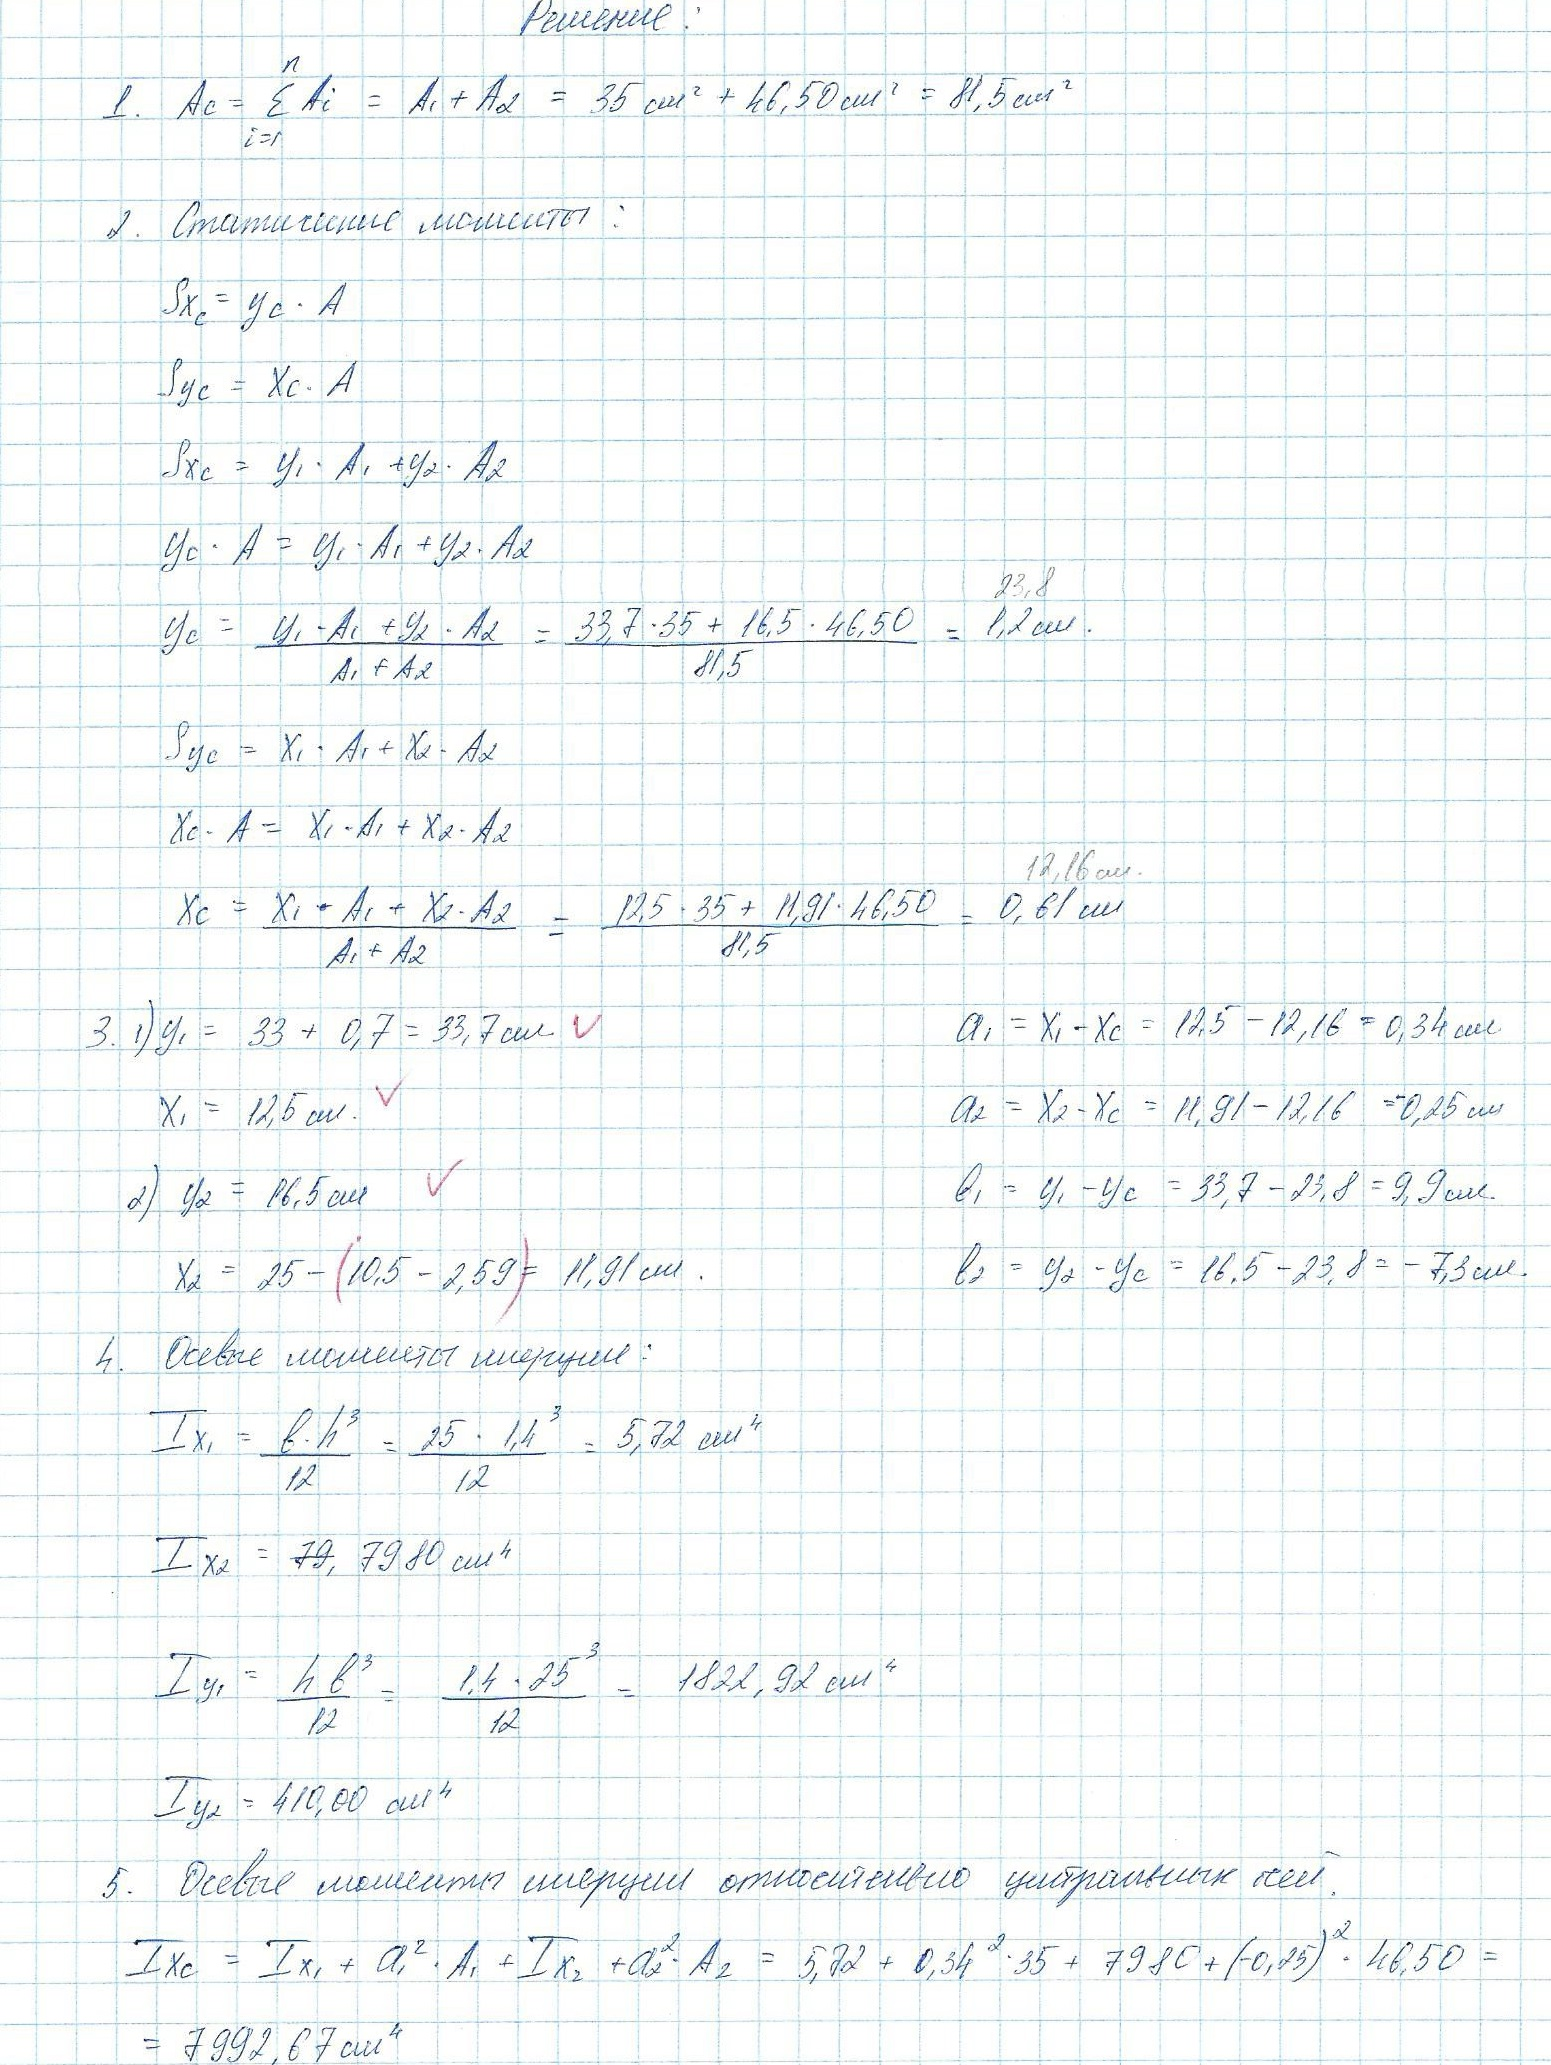 Решение:
n
1. Ac = Σ Ai = A1 + A2 = 35 см² + 46,50 см² = 81,5 см²
i=1
2. Статические моменты:
Sxc = yc · A
Syc = Xc · A
Sxc = y1 · A1 + y2 · A2
yc · A = y1 · A1 + y2 · A2
23,8
yc = (y1 · A1 + y2 · A2) / (A1 + A2) = (33,7 · 35 + 16,5 · 46,50) / 81,5 = 1,2 см.
Syc = X1 · A1 + X2 · A2
Xc · A = X1 · A1 + X2 · A2
12,16 см.
Xc = (X1 · A1 + X2 · A2) / (A1 + A2) = (12,5 · 35 + 11,91 · 46,50) / 81,5 = 0,61 см
3. 1) y1 = 33 + 0,7 = 33,7 см ✓
X1 = 12,5 см. ✓
2) y2 = 16,5 см ✓
X2 = 25 - (10,5 - 2,59) = 11,91 см.
a1 = X1 - Xc = 12,5 - 12,16 = 0,34 см
a2 = X2 - Xc = 11,91 - 12,16 = -0,25 см
в1 = y1 - yc = 33,7 - 23,8 = 9,9 см.
в2 = y2 - yc = 16,5 - 23,8 = - 7,3 см.
4. Осевые моменты инерции:
Ix1 = в · h³ / 12 = 25 · 1,4³ / 12 = 5,72 см⁴
Ix2 = 79, 7980 см⁴
Iy1 = h в³ / 12 = 1,4 · 25³ / 12 = 1822,92 см⁴
Iy2 = 410,00 см⁴
5. Осевые моменты инерции относительно центральных осей.
Ixc = Ix1 + a1² · A1 + Ix2 + a2² · A2 = 5,72 + 0,34² · 35 + 7980 + (-0,25)² · 46,50 =
= 7992,67 см⁴